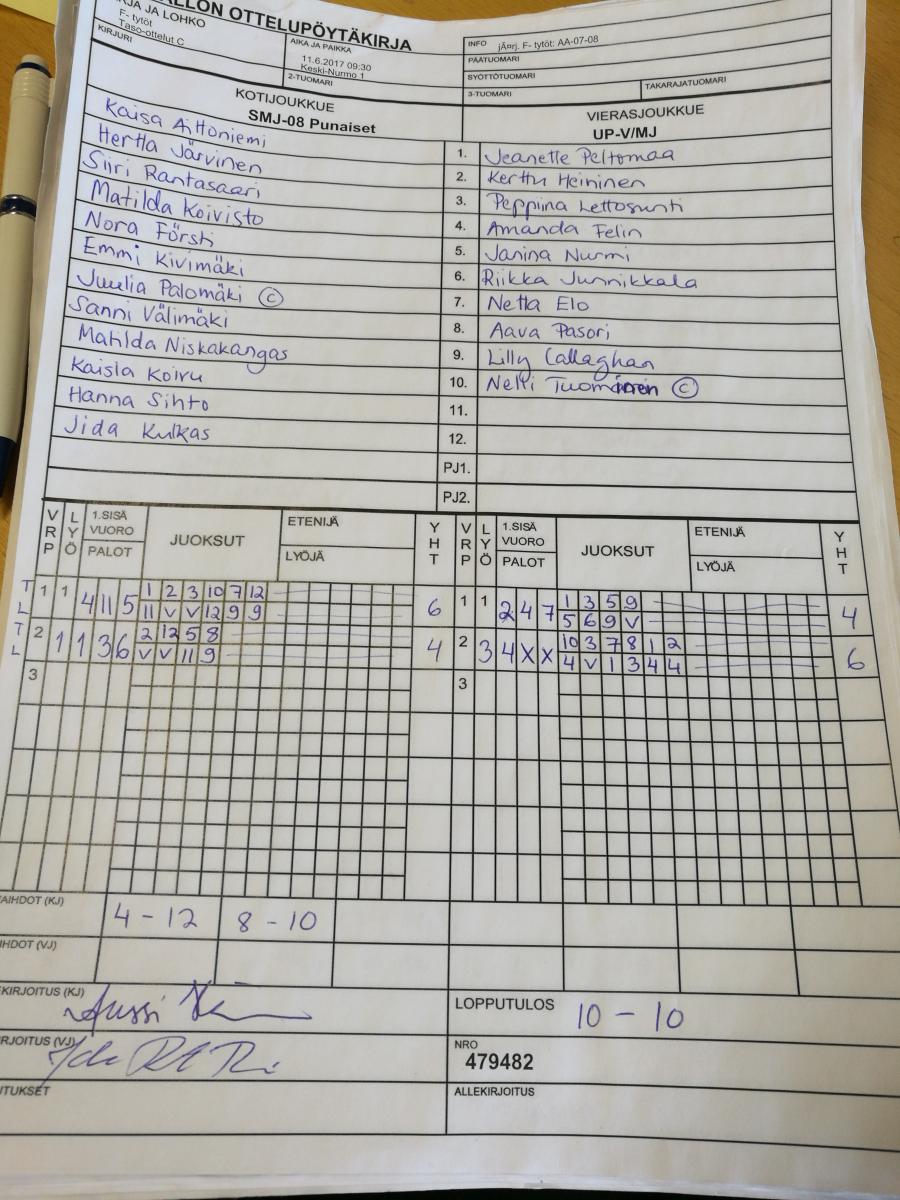 ALLON OTTELUPÖYTÄKIRJA
RJA JA LOHKO
F- tytöt
Taso-ottelut C
AIKA JA PAIKKA
11.6.2017 09:30
Keski-Nurmo 1
INFO jÄerj. F- tytöt: AA-07-08
PÄÄTUOMARI
KIRJURI
2-TUOMARI
SYÖTTÖTUOMARI
3-TUOMARI
TAKARAJATUOMARI
KOTIJOUKKUE
SMJ-08 Punaiset
VIERASJOUKKUE
UP-V/MJ
Kaisa Aittoniemi
1. Jeanette Peltomaa
Hertta Järvinen
2. Kerttu Heininen
Siiri Rantasaari
3. Peppiina Lettosunti
Matilda Koivisto
4. Amanda Felin
Nora Försti
5. Janina Nurmi
Emmi Kivimäki
6. Riikka Junnikkala
Juulia Palomäki ©
7. Netta Elo
Sanni Välimäki
8. Aava Pasori
Matilda Niskakangas
9. Lilly Callaghan
Kaisla Koivu
10. Nelli Tuominen ©
Hanna Sihto
11.
Jida Kulkas
12.
PJ1.
PJ2.
VRP LYÖ 1.SISÄ VUORO PALOT JUOKSUT ETENIJÄ LYÖJÄ YHT VRP LYÖ 1.SISÄ VUORO PALOT JUOKSUT ETENIJÄ LYÖJÄ YHT
T 1 1 4 11 5 1 2 3 10 7 12 6 1 1 2 4 7 1 3 5 9 4
L 11 V V 12 9 9 5 6 9 V
T 2 1 1 3 6 2 12 5 8 4 2 3 4 X X 10 3 7 8 1 2 6
L V V 11 9 4 V 1 3 4 4
3 3
AIHDOT (KJ) 4 - 12 8 - 10
IHDOT (VJ)
KIRJOITUS (KJ)
LOPPUTULOS 10 - 10
RJOITUS (VJ)
NRO
479482
ITUKSET
ALLEKIRJOITUS